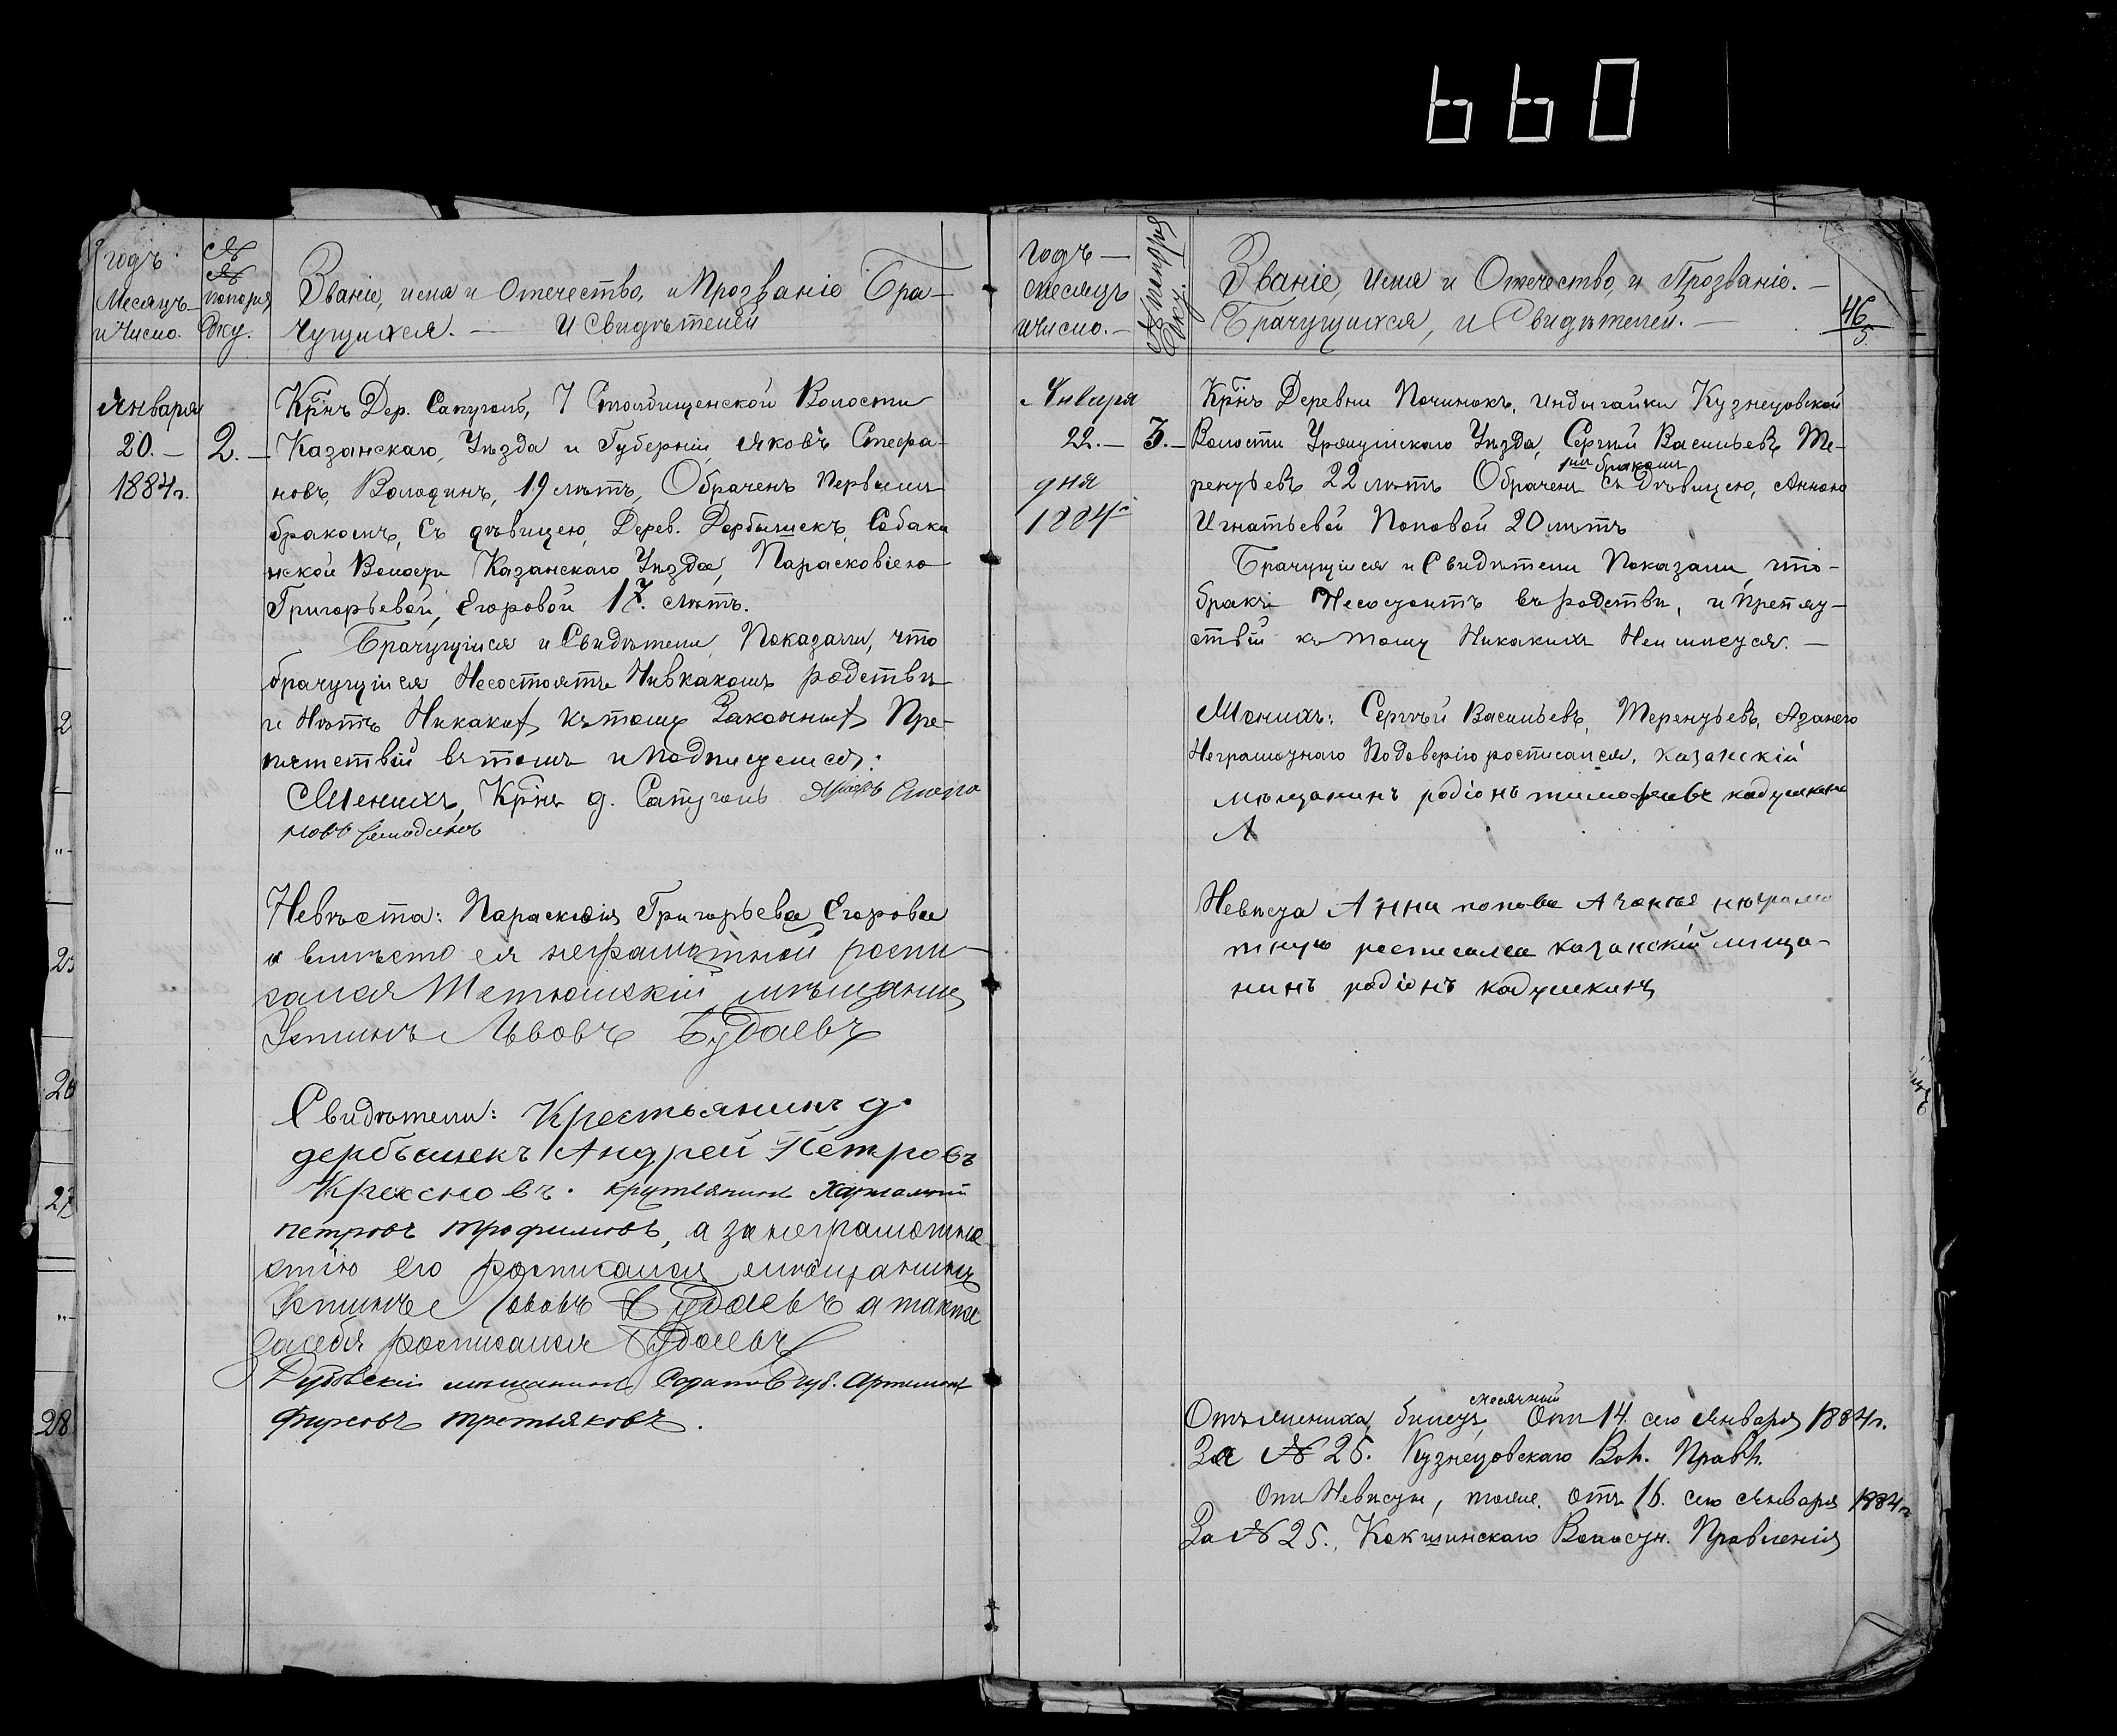 660
годъ
Месяцъ
и Число.
№
№
попоряд
дку.
Званіе, имя и Отечество, и Прозваніе Бра-
чущихся. — И Свидѣтелей
Января
20. —
1884 г.
2. —
Крнъ Дер. Сапуголь, 7 Столбищенской Волости
Казанскаго, Уѣзда и Губерніи, Яковъ Стефа-
новъ, Володинъ, 19 лѣтъ, Обраченъ Первымъ
бракомъ, Съ дѣвицею, Дерев. Дербышекъ, Собаки
нской Волости Казанскаго Уѣзда, Парасковіею
Григорьевой, Егоровой 17. лѣтъ.
Брачущіися и Свидѣтели, Показали, что
брачущіися Несостоятъ Нивкакомъ родствѣ
и Нѣтъ Никаких къ тому Законных Пре-
пятствій въ томъ и Подписуемся:
Женихъ, Крнъ д. Сапуголь Яковъ Степа
новъ Володинъ
Невѣста: Параскѣвія Григорьева Егорова
а вмѣсто ея неграмотной роспи-
сался Тетюшскій мѣщанинъ
Устинъ Львовъ Будаевъ
Свидѣтели: Крестьянинъ д.
дербышекъ Андрей Петровъ
Красновъ. крестянинъ
петровъ трофимовъ, а за неграмотно
стію его росписался мѣщанинъ
Устинъ Львовъ Будаевъ а также
засебя росписался Будаевъ
Дубовскій мѣщанинъ губ. Артемонъ
Фирсовъ третьяковъ.
Годъ —
месяцъ
и Число. —
№ попоря
дку.
Званіе, Имя и Отечество, и Прозваніе. —
Брачущихся, и Свидѣтелей. —
46
5.
Января
22. —
дня
1884 г
3. —
Крнъ Деревни Починокъ, Индыгайки Кузнецовской
Волости Уржумскаго Уѣзда, Сергѣй Васильевъ Те-
1мъ бракомъ
рентьевъ 22 лѣтъ Обраченъ съ Дѣвицею, Анною
Игнатьевой Поповой 20 лѣтъ
Брачущіися и Свидѣтели Показали, что-
браки Несостоятъ въ родствѣ, и Препят-
ствій къ тому Никакихъ Неимѣется. —
Женихъ: Сергѣй Васильевъ, Терентьевъ, Азанего
Неграмотнаго Подоверію росписался, казанскій
мѣщанинъ родіонъ тимофѣевъ кадушкинъ
А
Невѣста Анна попова А занея неграмо
тную росписался казанскій мѣща-
нинъ родіонъ кадушкинъ
месячный
Отъ жениха, билетъ, Отъ 14. сего Января 1884 г.
За № 25. Кузнецовскаго Вол. Правл.
Отъ Невѣсты, тоже. отъ 16. сего Января 1884 г.
За № 25., Кокшинскаго Волостн. Правленія
2
25
26
27
28